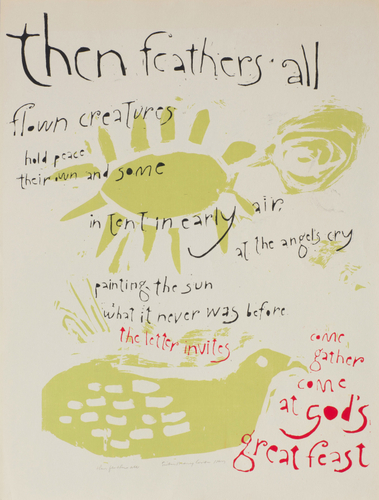 then feathers all
flown creatures
hold peace
their own and some
in tent in early air.
at the angels cry
painting the sun
what it never was before.
the letter invites
come
gather
come
at god's
great feast